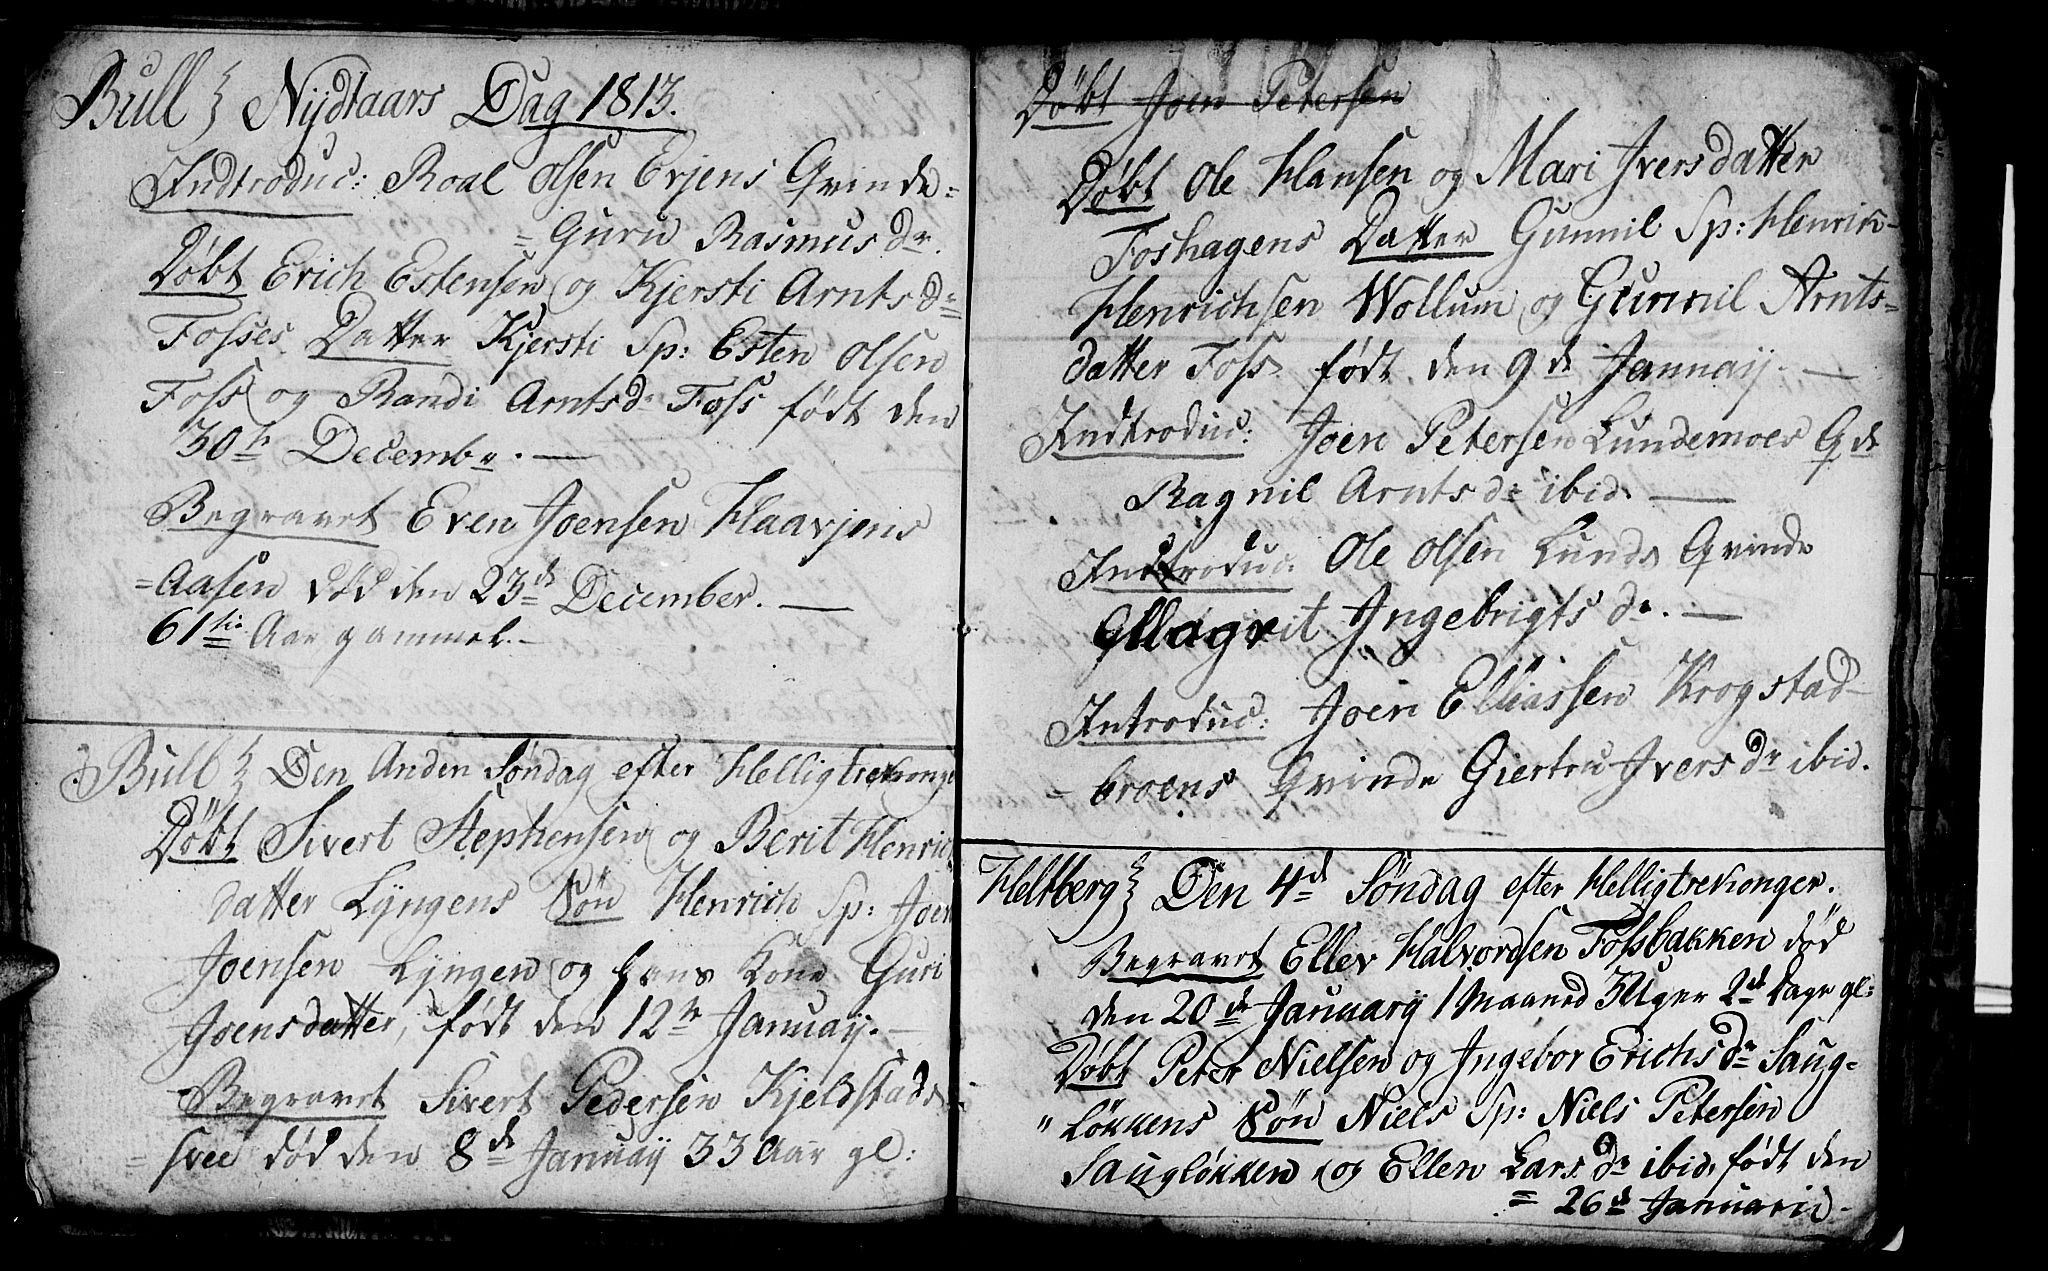 Bull Nÿdtaars Dag 1813.
Indtroduc: Roal Olsen Evjens Qvinde=
= Guru Rasmus dr.
Døbt Erich Estensen og Kjersti Arnts dr
Fosses Datter Kjersti Sp: Esten Olsen
Foss og Randi Arntsdr Foss født den
30te Decembr. —
Begravet Even Joensen Haavjens
=Aasen død den 23de December. —
61tie Aar gammel. -
Bull Den Anden Søndag efter Helligtrekonge
Døbt Sivert Stephensen og Berit Henric
datter Lÿngens Søn Henrich Sp: Joen
Joensen Lÿngen og hans Kone Guri
Joensdatter, født den 12te Januaÿ. —
Begravet Sivert Pedersen Kjelsstads
= svee død den 8de Januaÿ 33 Aar gl:
Døbt Joen Petersen
Døbt Ole Hansen og Mari Ivers datter
Foshagens Datter Gunnil Sp: Henrik-
Henrichsen Wollum og Gunnil Arnts=
datter Foss født den 9de Januaÿ. —
Indtroduc: Joen Petersen Lundemoes Qde
Ragnil Arnts dr ibid. —
Indtroduc: Ole Olsen Lunds Qvinde
Magrit Ingebrigts dr. —
Introduc: Joen Elliassen Krogstad-
- broens Qvinde Giertru Ivers dr ibid.
Heltberg Den 4de Søndag efter Helligtrekonger.
Begravet Ellev Halvordsen Fossbakken død
den 20de Januarÿ 1 Maaned 3 Uger 2de Dage gl:
Døbt Peter Nielsen og Ingebor Erichs dr Saug-
" løkkens Søn Niels Sp: Niels Petersen
Saugløkken og Ellen Lars dr ibid, født den
= 26de Januarii -